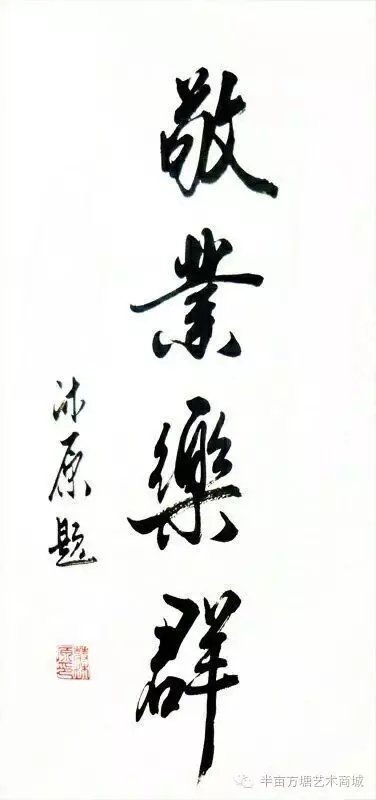 敬業樂群
沐原題
半亩方塘艺术商城